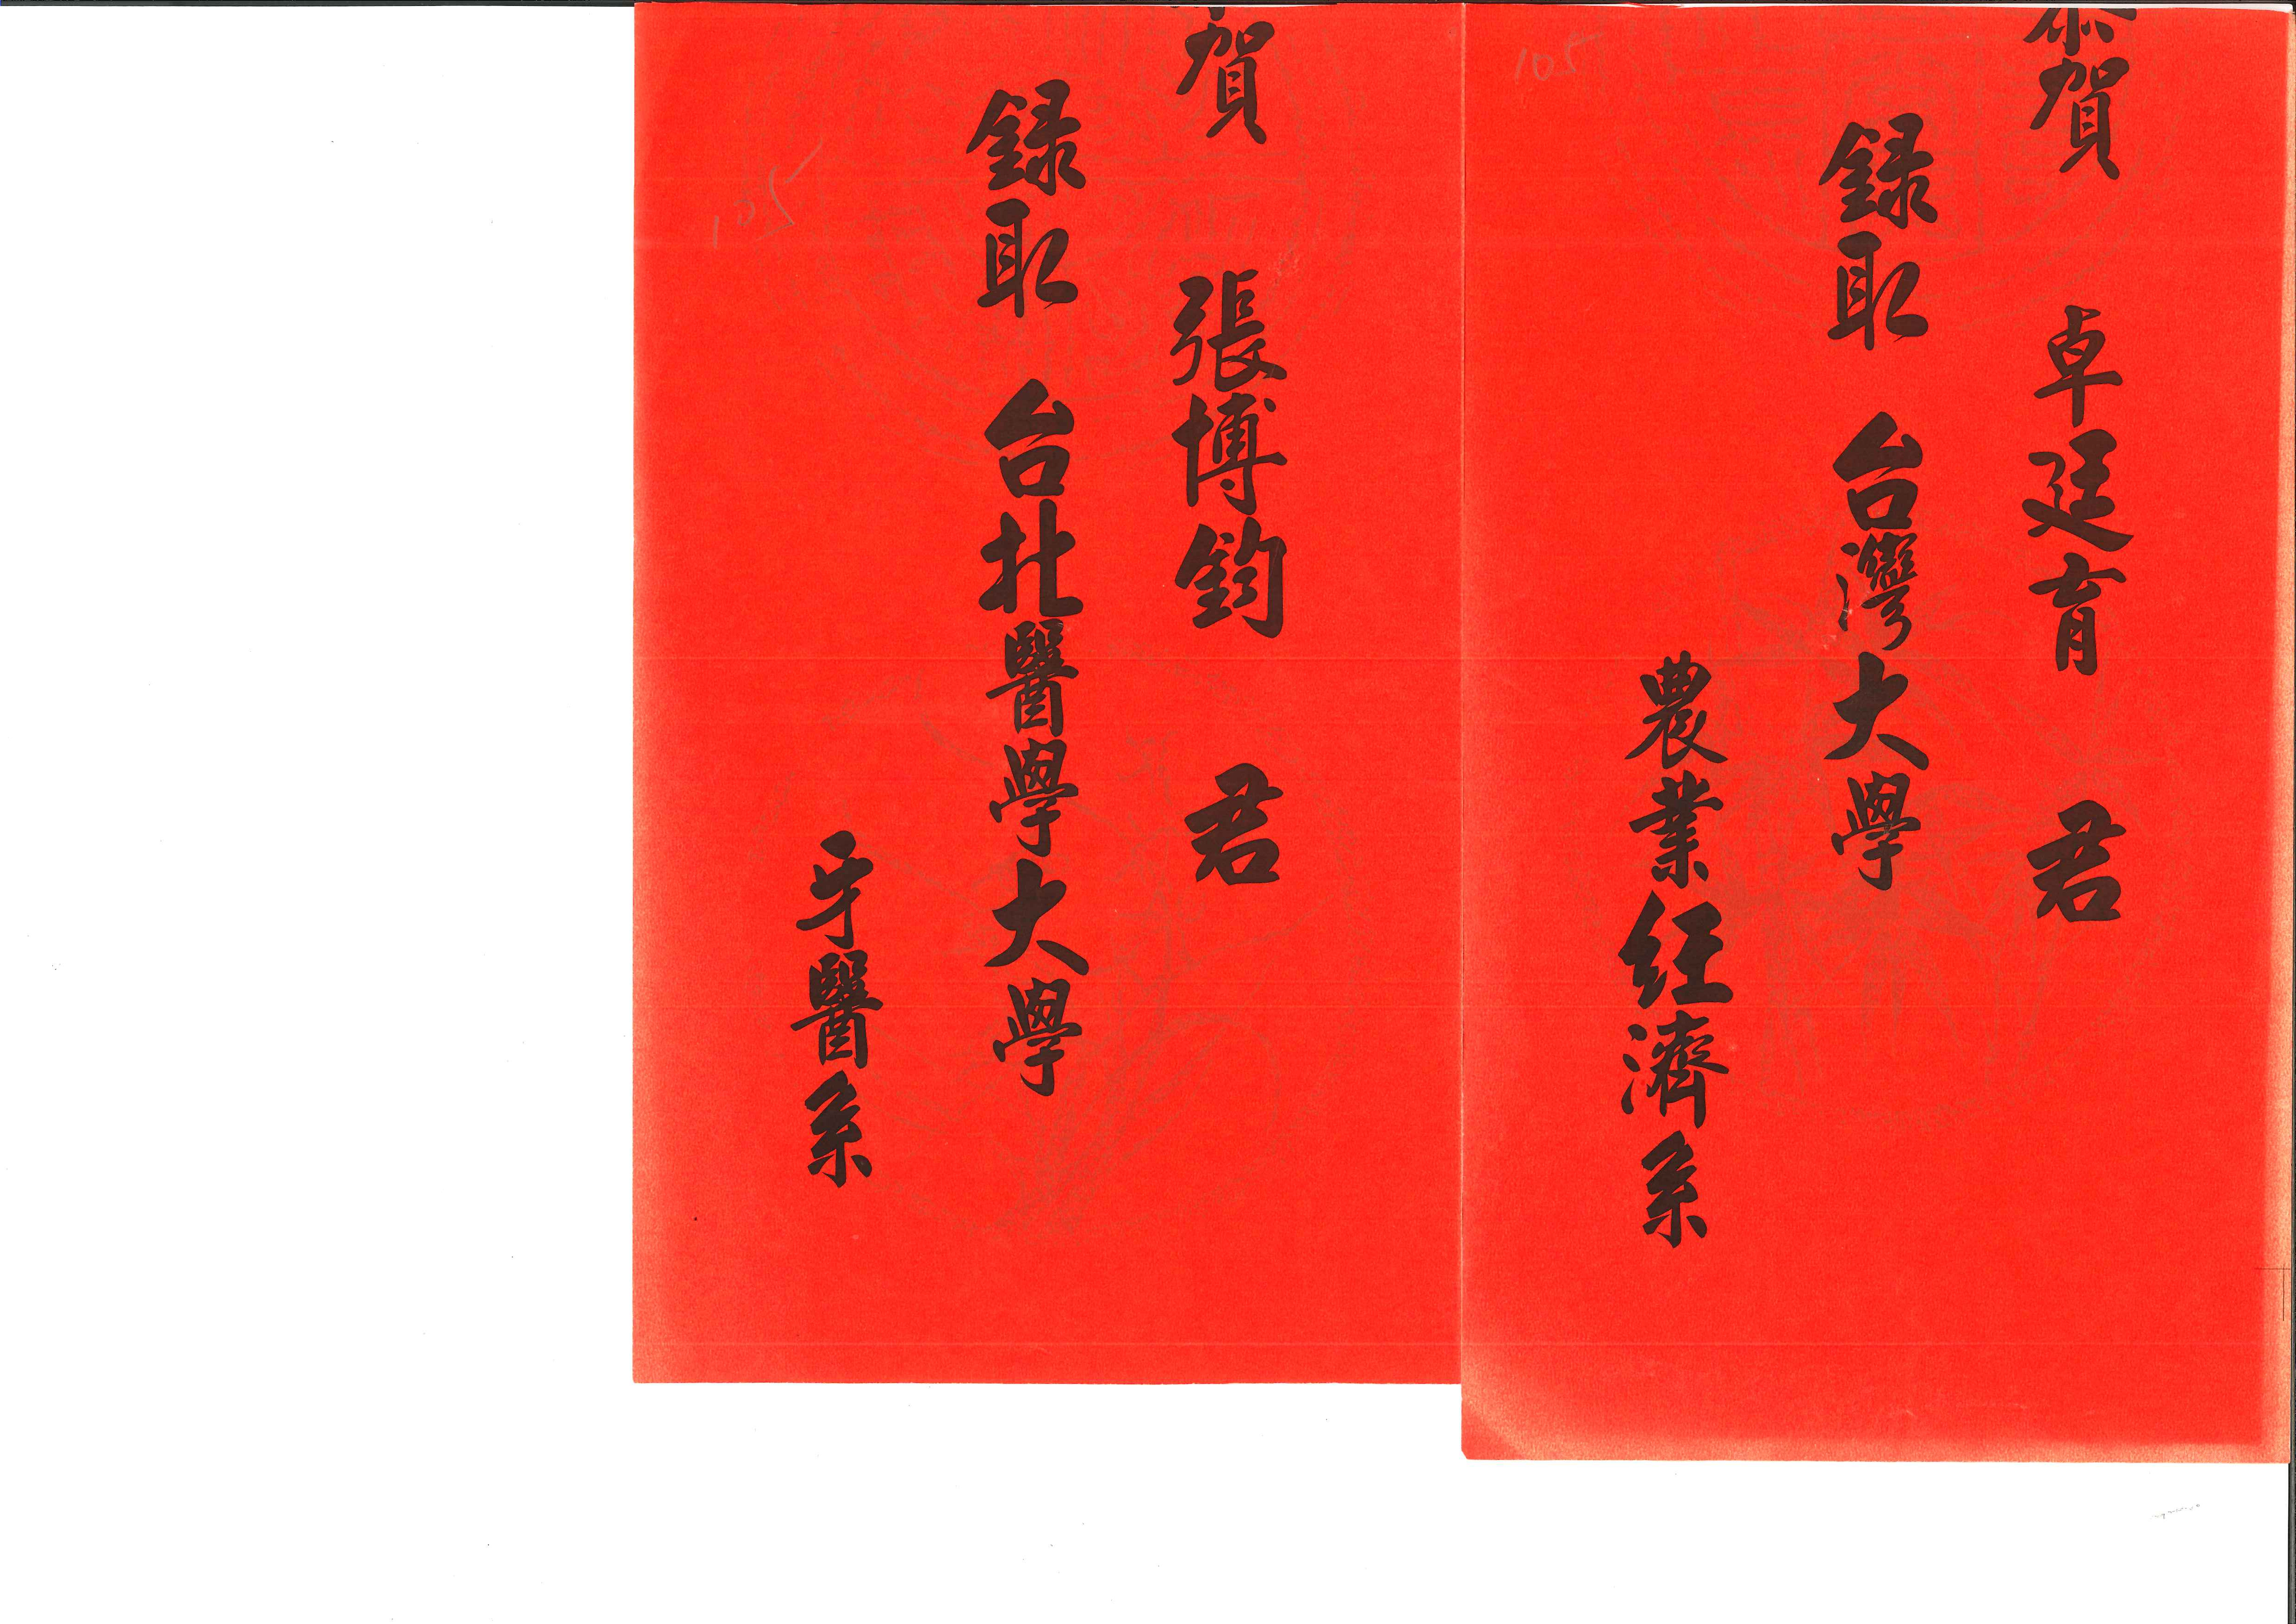 恭賀 卓廷育 君
錄取 台灣大學
農業經濟系
105
賀 張博鈞 君
錄取 台北醫學大學
牙醫系
105